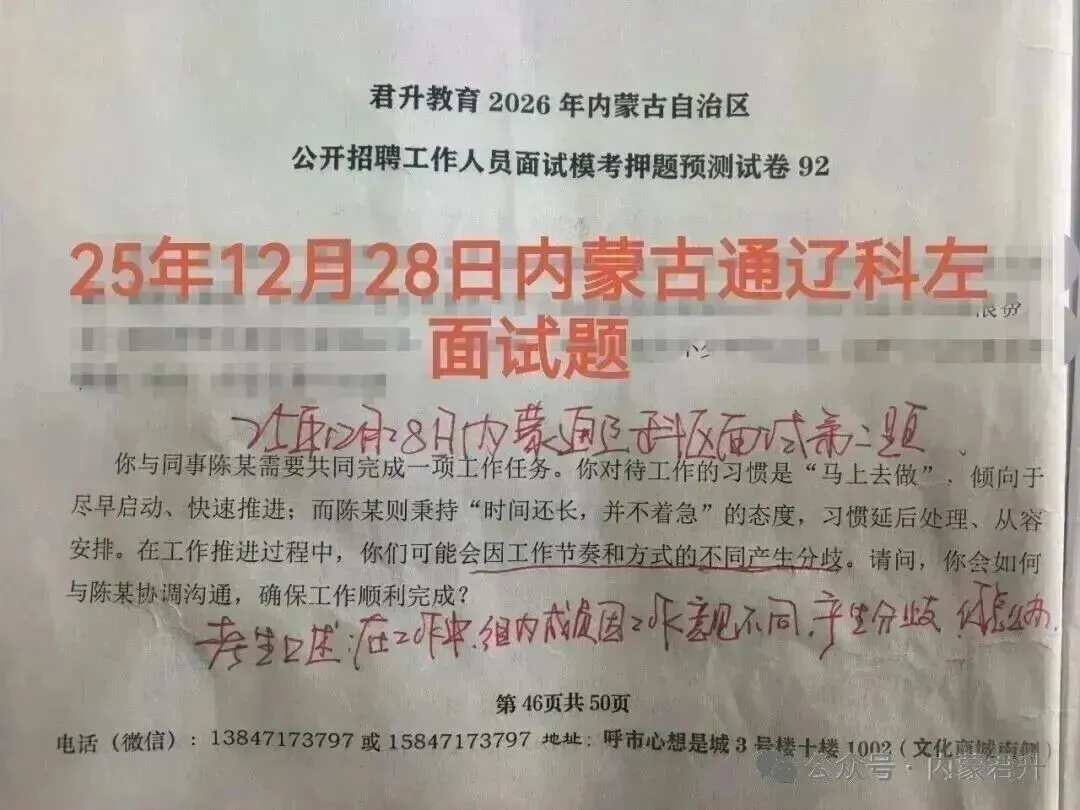 君升教育2026年内蒙古自治区
公开招聘工作人员面试模考押题预测试卷92
25年12月28日内蒙古通辽科左
面试题
25年12月28日内蒙通辽科区面试第二题
你与同事陈某需要共同完成一项工作任务。你对待工作的习惯是“马上去做”，倾向于
尽早启动、快速推进；而陈某则秉持“时间还长，并不着急”的态度，习惯延后处理、从容
安排。在工作推进过程中，你们可能会因工作节奏和方式的不同产生分歧。请问，你会如何
与陈某协调沟通，确保工作顺利完成？
考生口述：在工作中，组内成员因工作意见不同，产生分歧，你怎么办.
第46页共50页
电话（微信）：13847173797或15847173797 地址：呼市心想是城3号楼十楼1002（文化商城南侧）
公众号·内蒙君升